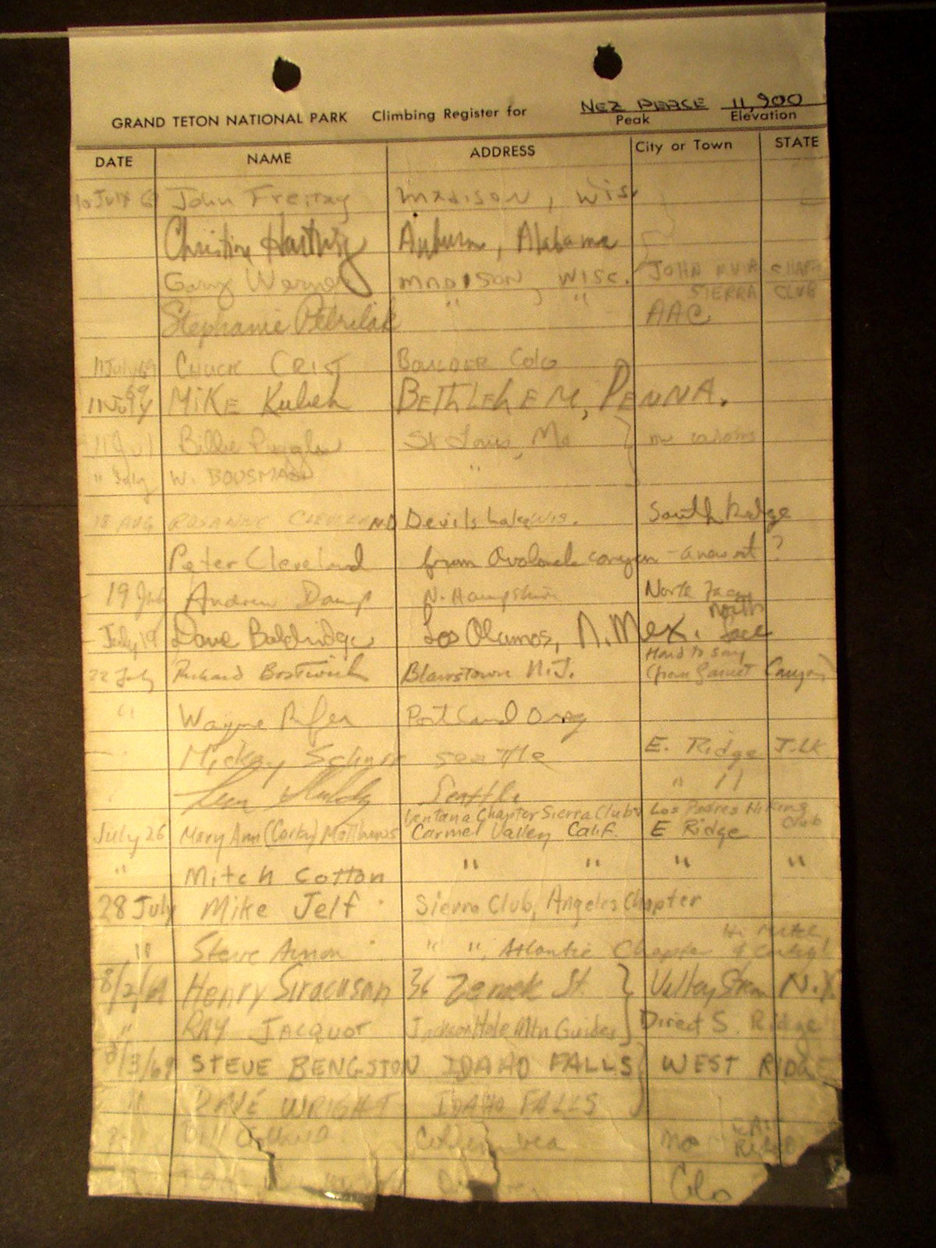 GRAND TETON NATIONAL PARK Climbing Register for NEZ PERCE 11,900
Peak Elevation
DATE NAME ADDRESS City or Town STATE
10 July John Freitag MADISON, WIS.
Auburn, Alabama
Gary Werner MADISON, WISC. JOHN MUIR CHAPT
SIERRA CLUB
Stephanie " " AAC
11 July 69 CHUCK CRIST BOULDER COLO
69
11 July MIKE Kubek BETHLEHEM, PENNA.
11 Jul Billie St Louis, Mo
" July W. "
18 AUG ROSANNE CLEVELAND Devils Lake Wis. South Ridge
Peter Cleveland from Avalanch canyon - ?
19 July Andrew N. Hampshire North Face
July 19 Dave Baldridge Los Alamos, N. Mex. North face
Hard to say
22 July Richard Bostwick Blairstown N.J. (from Garnet Canyon)
" Wayne Portland Oreg
Mickey Seattle E. Ridge
Seattle " "
Ventana Chapter Sierra Club Los Padres Hiking Club
July 26 Mary Ann (Corky) Matthews Carmel Valley Calif. E Ridge
" Mitch Cotton " " " "
28 July Mike Jelf Sierra Club, Angeles Chapter
" Steve " ", Atlantic Chapter
8/2/69 Henry 36 St. Valley Stream N.Y.
" RAY JACQUOT Jackson Hole Mtn Guides Direct S. Ridge
8/3/69 STEVE BENGSTON IDAHO FALLS WEST RIDGE
" DAVE WRIGHT IDAHO FALLS
Bill Columbia Mo EAST RIDGE
Colo